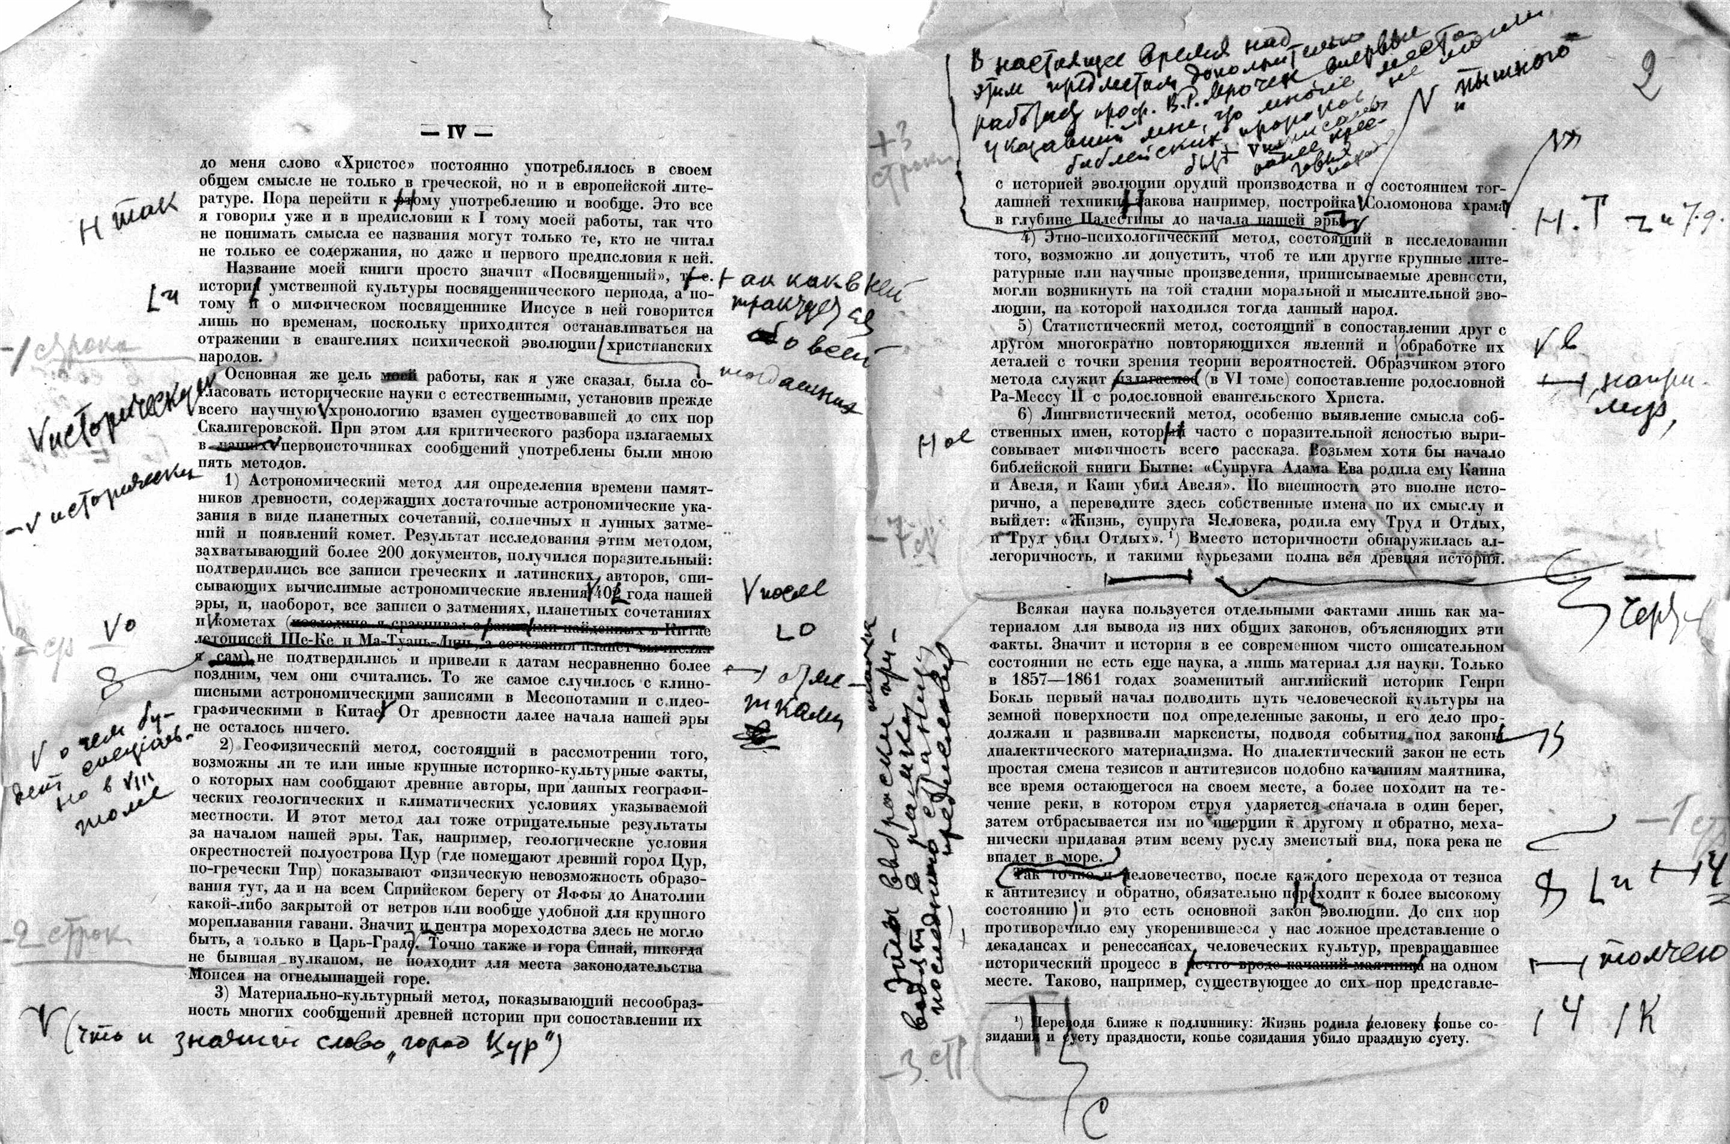 — IV —
до меня слово «Христос» постоянно употреблялось в своем
общем смысле не только в греческой, но и в европейской лите-
ратуре. Пора перейти к этому употреблению и вообще. Это все
я говорил уже и в предисловии к I тому моей работы, так что
не понимать смысла ее названия могут только те, кто не читал
не только ее содержания, но даже и первого предисловия к ней.
Название моей книги просто значит «Посвященный», т. е.
истори умственной культуры посвященнического периода, а по-
тому и о мифическом посвященнике Иисусе в ней говорится
лишь по временам, поскольку приходится останавливаться на
отражении в евангелиях психической эволюции христианских
народов.
Основная же цель моей работы, как я уже сказал, была со-
гласовать исторические науки с естественными, установив прежде
всего научную хронологию взамен существовавшей до сих пор
Скалигеровской. При этом для критического разбора излагаемых
в наших первоисточниках сообщений употреблены были мною
пять методов.
1) Астрономический метод для определения времени памят-
ников древности, содержащих достаточные астрономические ука-
зания в виде планетных сочетаний, солнечных и лунных затме-
ний и появлений комет. Результат исследования этим методом,
захватывающий более 200 документов, получился поразительный:
подтвердились все записи греческих и латинских авторов, опи-
сывающих вычислимые астрономические явления 402 года нашей
эры, и, наоборот, все записи о затмениях, планетных сочетаниях
и кометах (последние я сравнивал с найденных в Китае
летописей Ше-Ке и Ма-Туань-Линь, а сочетания планет вычислял
я сам) не подтвердились и привели к датам несравненно более
поздним, чем они считались. То же самое случилось с клино-
писными астрономическими записями в Месопотамии и с идео-
графическими в Китае. От древности далее начала нашей эры
не осталось ничего.
2) Геофизический метод, состоящий в рассмотрении того,
возможны ли те или иные крупные историко-культурные факты,
о которых нам сообщают древние авторы, при данных географи-
ческих геологических и климатических условиях указываемой
местности. И этот метод дал тоже отрицательные результаты
за началом нашей эры. Так, например, геологические условия
окрестностей полуострова Цур (где помещают древний город Цур,
по-гречески Тир) показывают физическую невозможность образо-
вания тут, да и на всем Сирийском берегу от Яффы до Анатолии
какой-либо закрытой от ветров или вообще удобной для крупного
мореплавания гавани. Значит и центра мореходства здесь не могло
быть, а только в Царь-Граде. Точно также и гора Синай, никогда
не бывшая вулканом, не подходит для места законодательства
Моисея на огнедышащей горе.
3) Материально-культурный метод, показывающий несообраз-
ность многих сообщений древней истории при сопоставлении их
(что и значит слово „город Цур")
Н так
Lи
-1 строка
V исторических
-V исторически
-2 стр
Vо
V о чем бу-
дет специаль-
но в VIII
томе
-2 строк
+ак как в ней
трактуется
о всей
тогдашних
V после
LO
В настоящее время над
этим предметом дополнительно
работает проф. В.Р. Мрочек впервые
указавший мне, что многие места
библейских пророков не могли
V пышного
2
+3
строки
с историей эволюции орудий производства и с состоянием тог-
дашней техники. Такова например, постройка Соломонова храма
в глубине Палестины до начала нашей эры.
4) Этно-психологический метод, состоящий в исследовании
того, возможно ли допустить, чтоб те или другие крупные лите-
ратурные или научные произведения, приписываемые древности,
могли возникнуть на той стадии моральной и мыслительной эво-
люции, на которой находился тогда данный народ.
5) Статистический метод, состоящий в сопоставлении друг с
другом многократно повторяющихся явлений и обработке их
деталей с точки зрения теории вероятностей. Образчиком этого
метода служит излагаемое (в VI томе) сопоставление родословной
Ра-Мессу II с родословной евангельского Христа.
6) Лингвистический метод, особенно выявление смысла соб-
ственных имен, который часто с поразительной ясностью выри-
совывает мифичность всего рассказа. Возьмем хотя бы начало
библейской книги Бытие: «Супруга Адама Ева родила ему Каина
и Авеля, и Каин убил Авеля». По внешности это вполне исто-
рично, а переводите здесь собственные имена по их смыслу и
выйдет: «Жизнь, супруга Человека, родила ему Труд и Отдых,
и Труд убил Отдых». ¹) Вместо историчности обнаружилась ал-
легоричность, и такими курьезами полна вся древняя история.
Всякая наука пользуется отдельными фактами лишь как ма-
териалом для вывода из них общих законов, объясняющих эти
факты. Значит и история в ее современном чисто описательном
состоянии не есть еще наука, а лишь материал для науки. Только
в 1857—1861 годах зоаменитый английский историк Генри
Бокль первый начал подводить путь человеческой культуры на
земной поверхности под определенные законы, и его дело про-
должали и развивали марксисты, подводя события под законы
диалектического материализма. Но диалектический закон не есть
простая смена тезисов и антитезисов подобно качаниям маятника,
все время остающегося на своем месте, а более походит на те-
чение реки, в котором струя ударяется сначала в один берег,
затем отбрасывается им по инерции к другому и обратно, меха-
нически придавая этим всему руслу змеистый вид, пока река не
впадет в море.
Так точно и человечество, после каждого перехода от тезиса
к антитезису и обратно, обязательно переходит к более высокому
состоянию и это есть основной закон эволюции. До сих пор
противоречило ему укоренившееся у нас ложное представление о
декадансах и ренессансах человеческих культур, превращавшее
исторический процесс в нечто вроде качаний маятника на одном
месте. Таково, например, существующее до сих пор представле-
¹) Переводя ближе к подлиннику: Жизнь родила человеку копье со-
зидания и суету праздности, копье созидания убило праздную суету.
Н.Т
V в
напри-
мер,
Н ое
-7 ст
черта
Lи
толчею
/ч /К
-3 стр
С